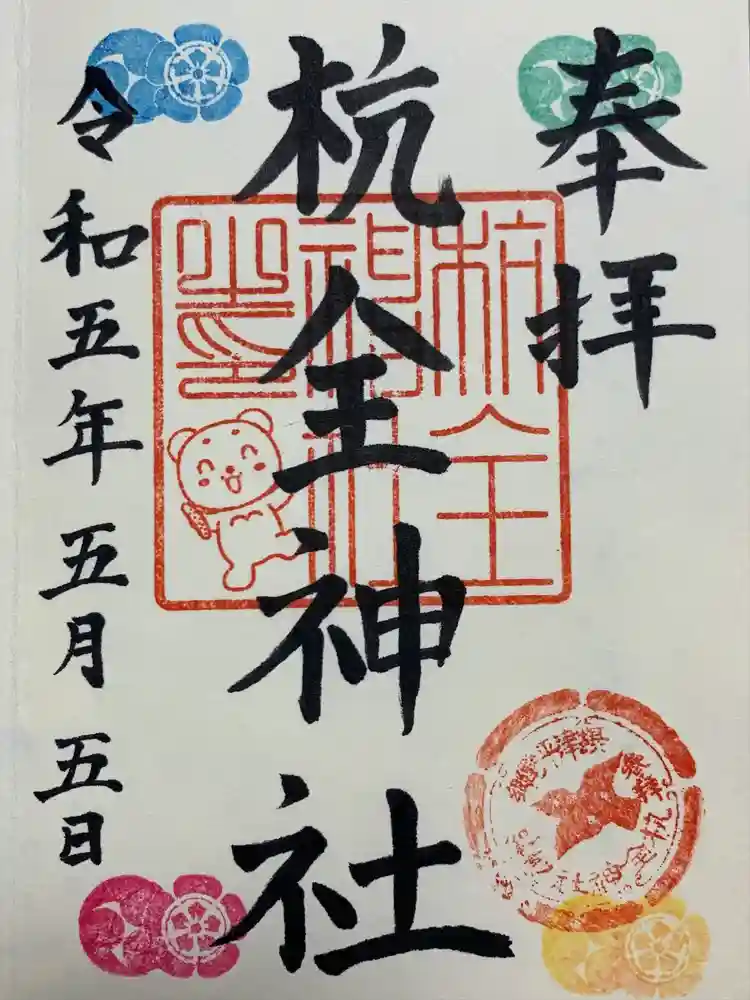 奉拝
杭全神社
令和五年五月五日
杭全
神社